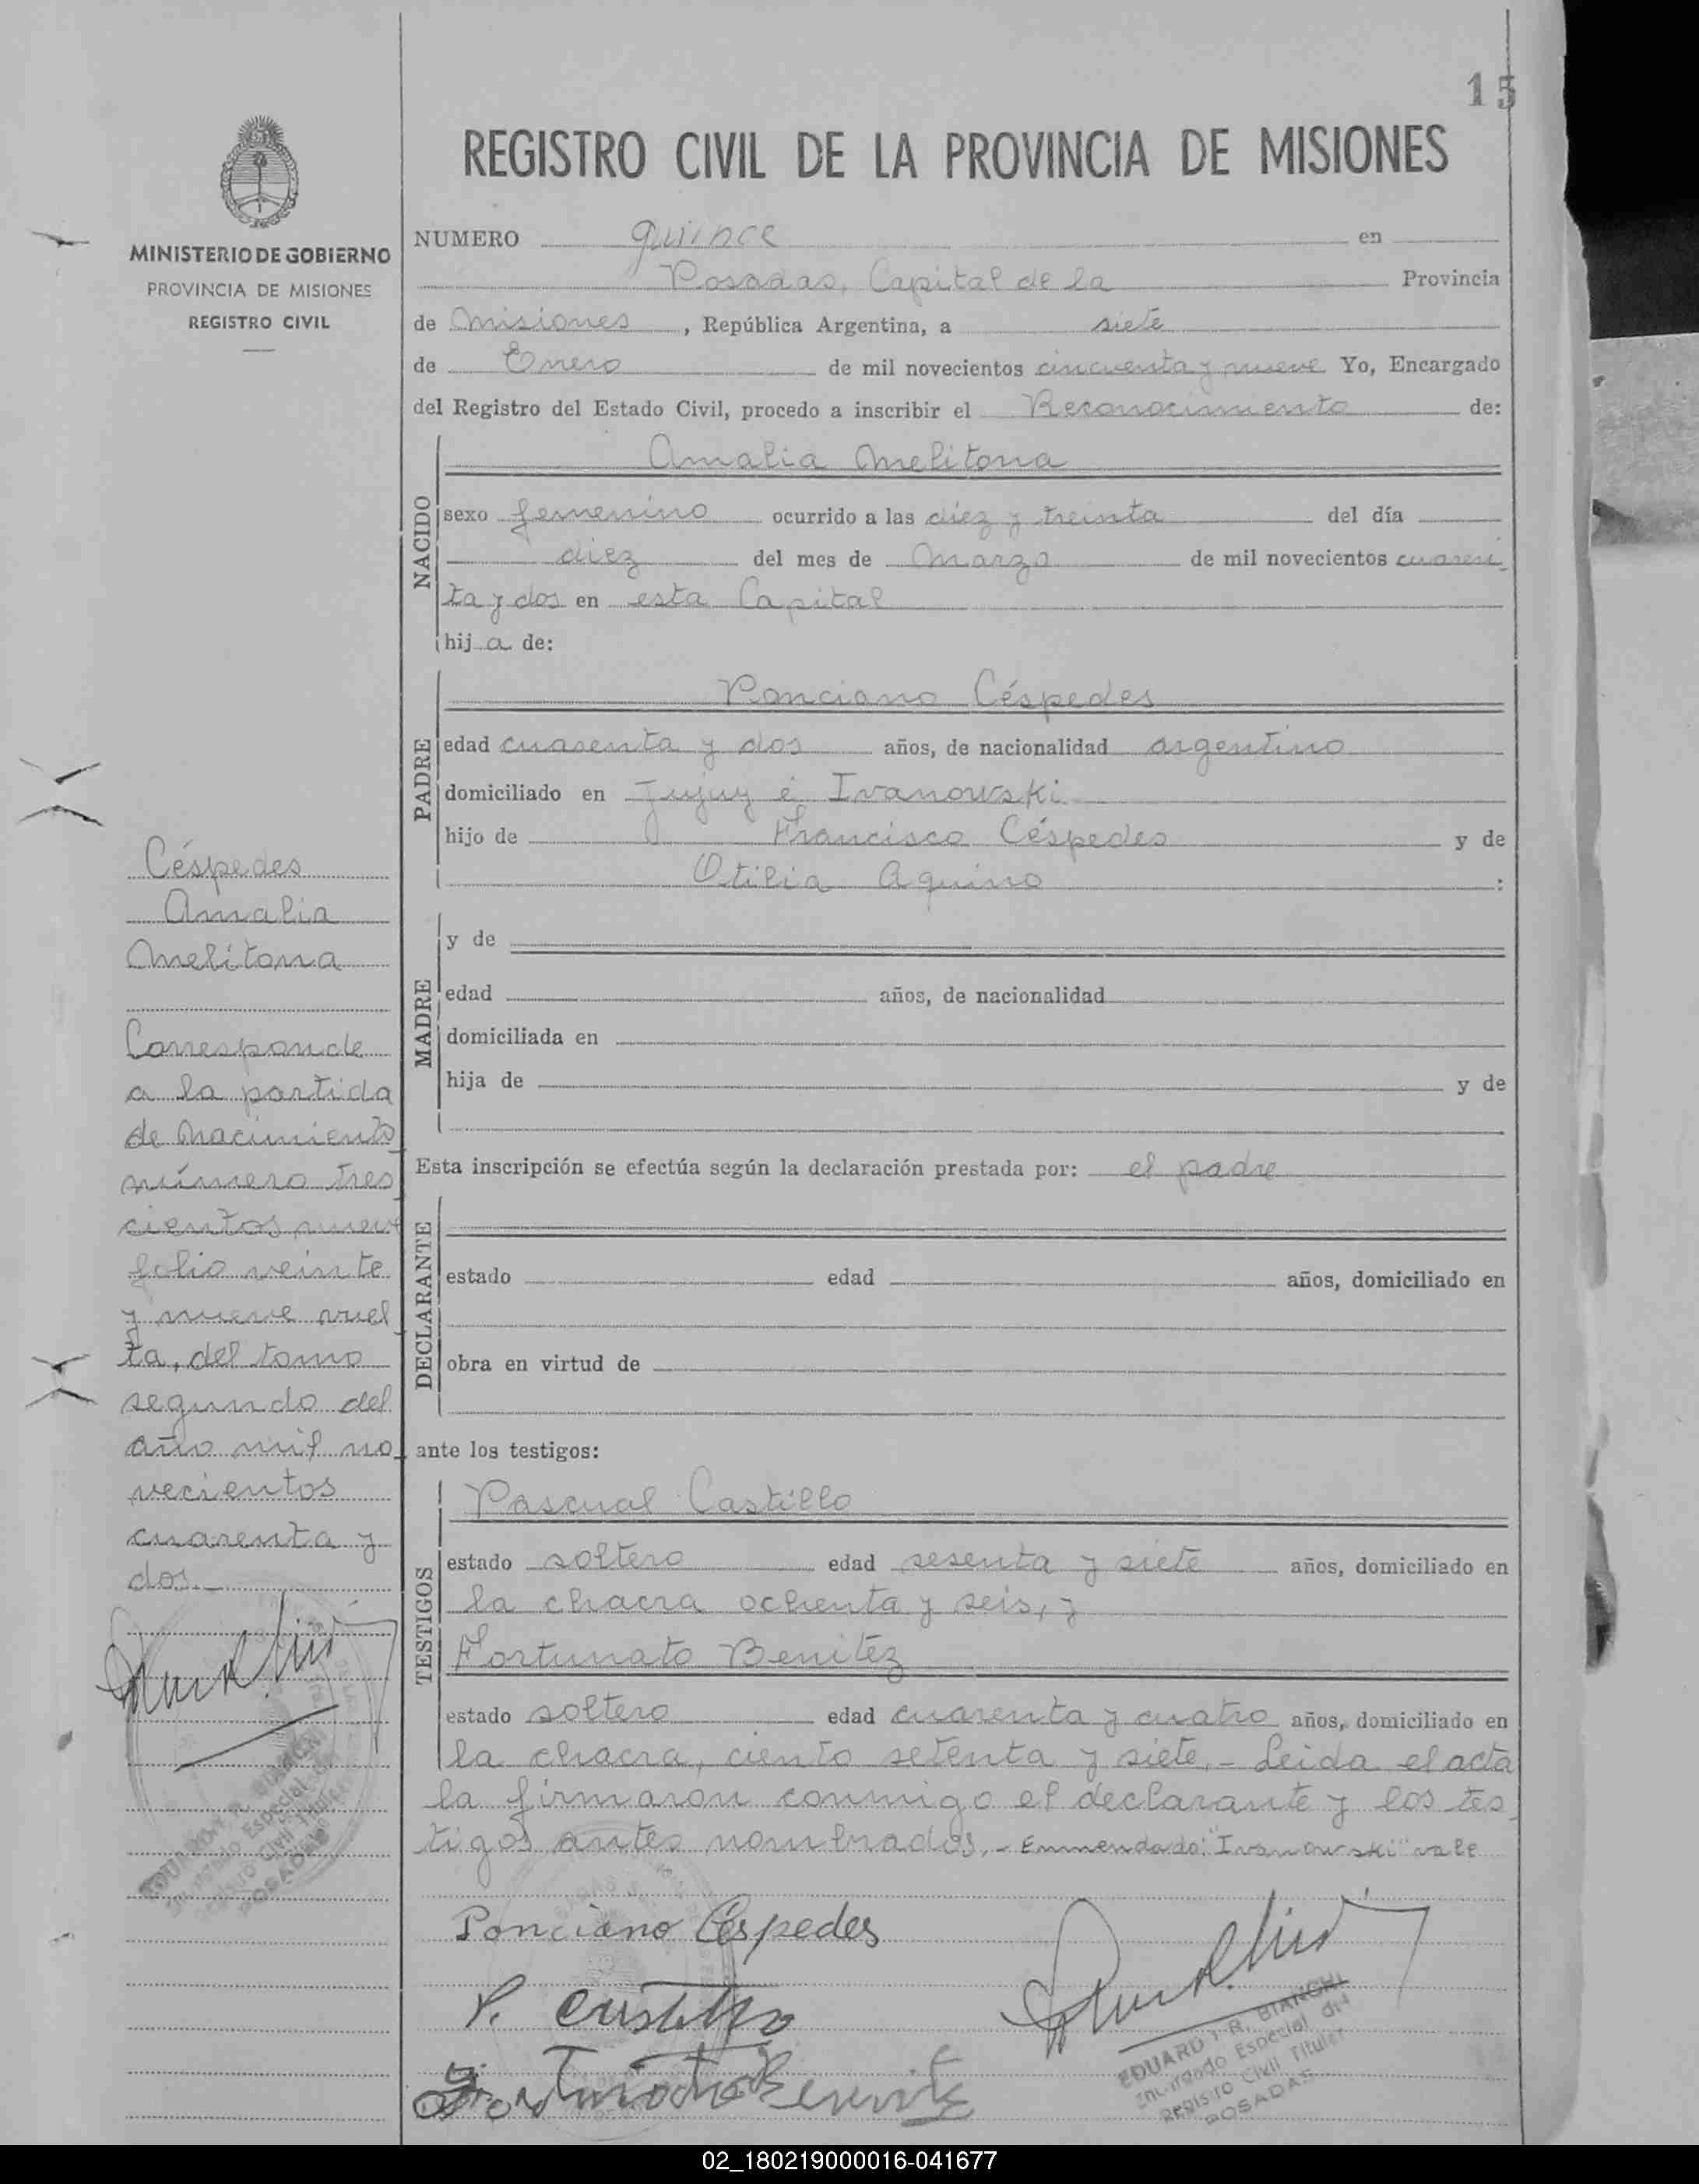 15
REGISTRO CIVIL DE LA PROVINCIA DE MISIONES
MINISTERIO DE GOBIERNO
PROVINCIA DE MISIONES
REGISTRO CIVIL
NUMERO quince en
Posadas, Capital de la Provincia
de Misiones, República Argentina, a siete
de Enero de mil novecientos cincuenta y nueve Yo, Encargado
del Registro del Estado Civil, procedo a inscribir el Reconocimiento de:
NACIDO
Amalia Melitona
sexo femenino ocurrido a las diez y treinta del día
diez del mes de Marzo de mil novecientos cuaren
ta y dos en esta Capital
hij a de:
PADRE
Ponciano Céspedes
edad cuarenta y dos años, de nacionalidad argentino
domiciliado en Jujuy é Ivanowski
hijo de Francisco Céspedes y de
Otilia Aquino :
MADRE
y de
edad años, de nacionalidad
domiciliada en
hija de y de
Esta inscripción se efectúa según la declaración prestada por: el padre
DECLARANTE
estado edad años, domiciliado en
obra en virtud de
ante los testigos:
TESTIGOS
Pascual Castillo
estado soltero edad sesenta y siete años, domiciliado en
la chacra ochenta y seis, y
Fortunato Benítez
estado soltero edad cuarenta y cuatro años, domiciliado en
la chacra, ciento setenta y siete.- Leida el acta
la firmaron conmigo el declarante y los tes
tigos antes nombrados.- Enmendado: "Ivanowski" vale
Ponciano Céspedes
P. Castillo
Fortunato Benite
EDUARDO R. BIANCHI
Encargado Especial del
Registro Civil Titular
POSADAS
Céspedes
Amalia
Melitona
Corresponde
a la partida
de Nacimiento
número tres
cientos nueve
folio veinte
y nueve vuel
ta, del tomo
segundo del
año mil no
vecientos
cuarenta y
dos.-
EDUARDO R. BIANCHI
Encargado Especial del
Registro Civil Titular
POSADAS
02_180219000016-041677